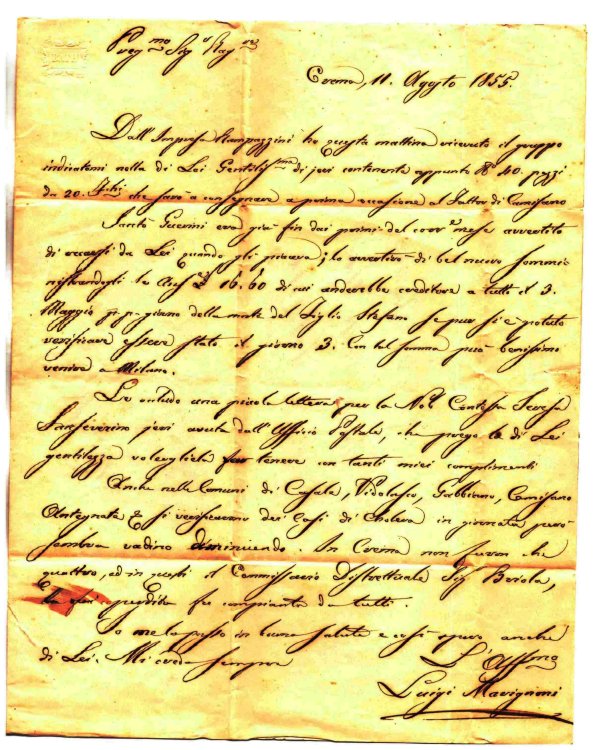 Preg.mo Sig.r Rag.re
Crema, 11. Agosto 1855.
Dall'Impresa Stampazzini ho questa mattina ricevuto il gruppo
indicatomi nella di Lei Gentiliss.ma di jeri contenente appunto N° 40. pezzi
da 20. che sarò a consegnare a prima occasione al Fattor di Camisano
Santo Guerini era già fin dai primi del corr.e mese avvertito
di recarsi da Lei quando gli piaceva; lo avvertirò di bel nuovo sommi-
nistrandogli le 16.60 di cui anderebbe creditore a tutto il 3.
Maggio p.p. giorno della morte del Figlio Stefano se pur si è potuto
verificare essere stato il giorno 3. Con tal somma può benissimo
venire a Milano.
Le includo una piccola lettera per la Nob. Contessa Teresa
Sanseverino jeri avuta dall'Ufficio Postale, che prego la di Lei
gentilezza volergliela far tenere con tanti miei complimenti
Anche nelle Comuni di Casale, Vidolasco, Gabbiano, Camisano
Antegnate & si verificarono dei Casi di Cholera in giornata però
sembra vadino diminuendo. In Crema non furon che
quattro, ed in questi il Commissario Distrettuale Sig. Beriola,
la cui perdita fu compianta da tutti.
Io me la passo in buona salute e così spero anche
di Lei. Mi creda sempre
L'Aff.mo
Luigi Mavignoni